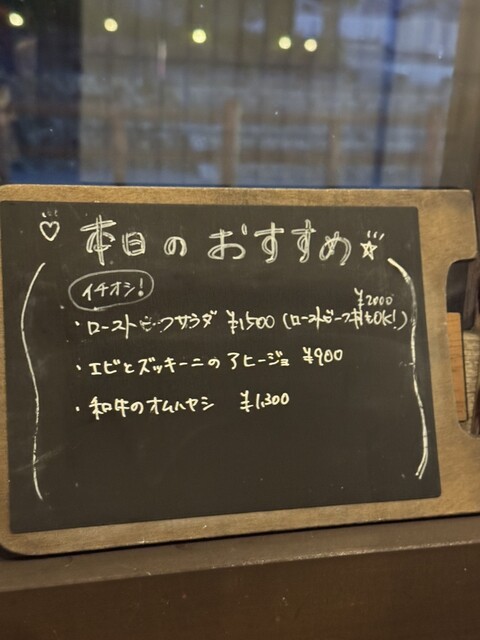 本日のおすすめ
イチオシ!
・ローストビーフサラダ ¥1500 (ローストビーフ丼もOK!)
¥2000
・エビとズッキーニのアヒージョ ¥900
・和牛のオムハヤシ ¥1,300